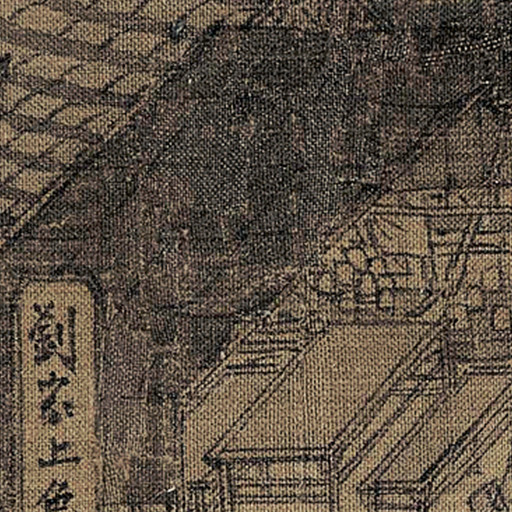 劉家上色